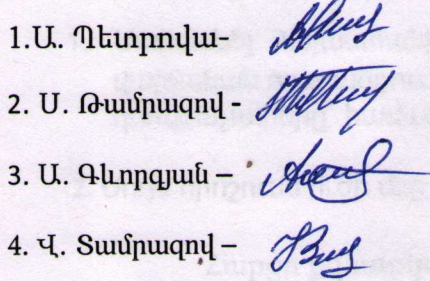 1.Ա. Պետրովա-
2. Ս. Թամրազով -
3. Ա. Գևորգյան –
4. Վ. Տամրազով –